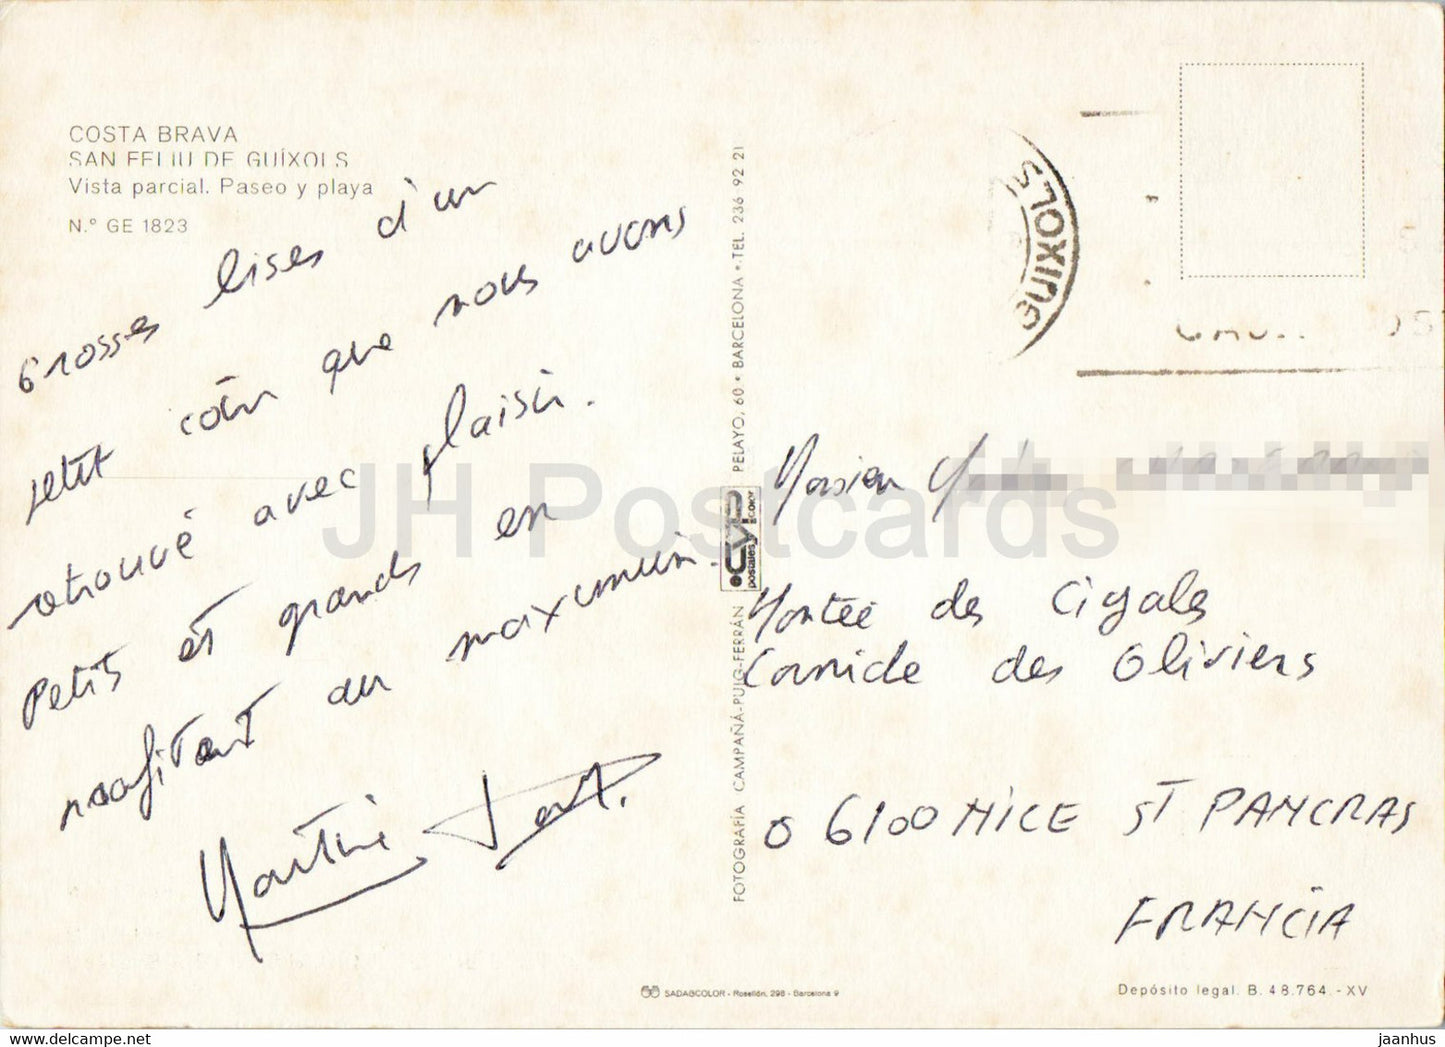 COSTA BRAVA
SAN FELIU DE GUÍXOLS
Vista parcial. Paseo y playa
N.° GE 1823
Grosses bises d'un
petit coin que nous avons
retrouvé avec plaisir.
Petits et grands en
profitent au maximum.
Martine
FOTOGRAFÍA CAMPAÑÁ-PUIG-FERRÁN
postales CYP color
PELAYO, 60 • BARCELONA • TEL. 236 92 21
GUIXOLS
Monsieur
Montée des Cigales
Corniche des Oliviers
06100 NICE ST PANCRAS
FRANCIA
SADAGCOLOR - Rosellón, 298 - Barcelona 9
Depósito legal. B. 48.764.-XV
JH Postcards
www.delcampe.net
jaanhus